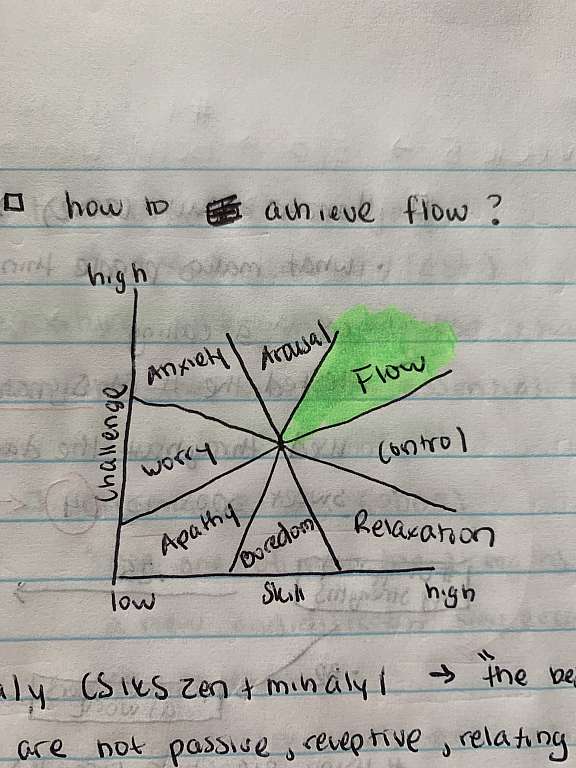 how to achieve flow?
high
Anxiety Arousal
Flow
Challenge
Worry Control
Apathy Boredom Relaxation
low Skill high
aly CSIKSzentmihalyi → "the be
are not passive, receptive, relating